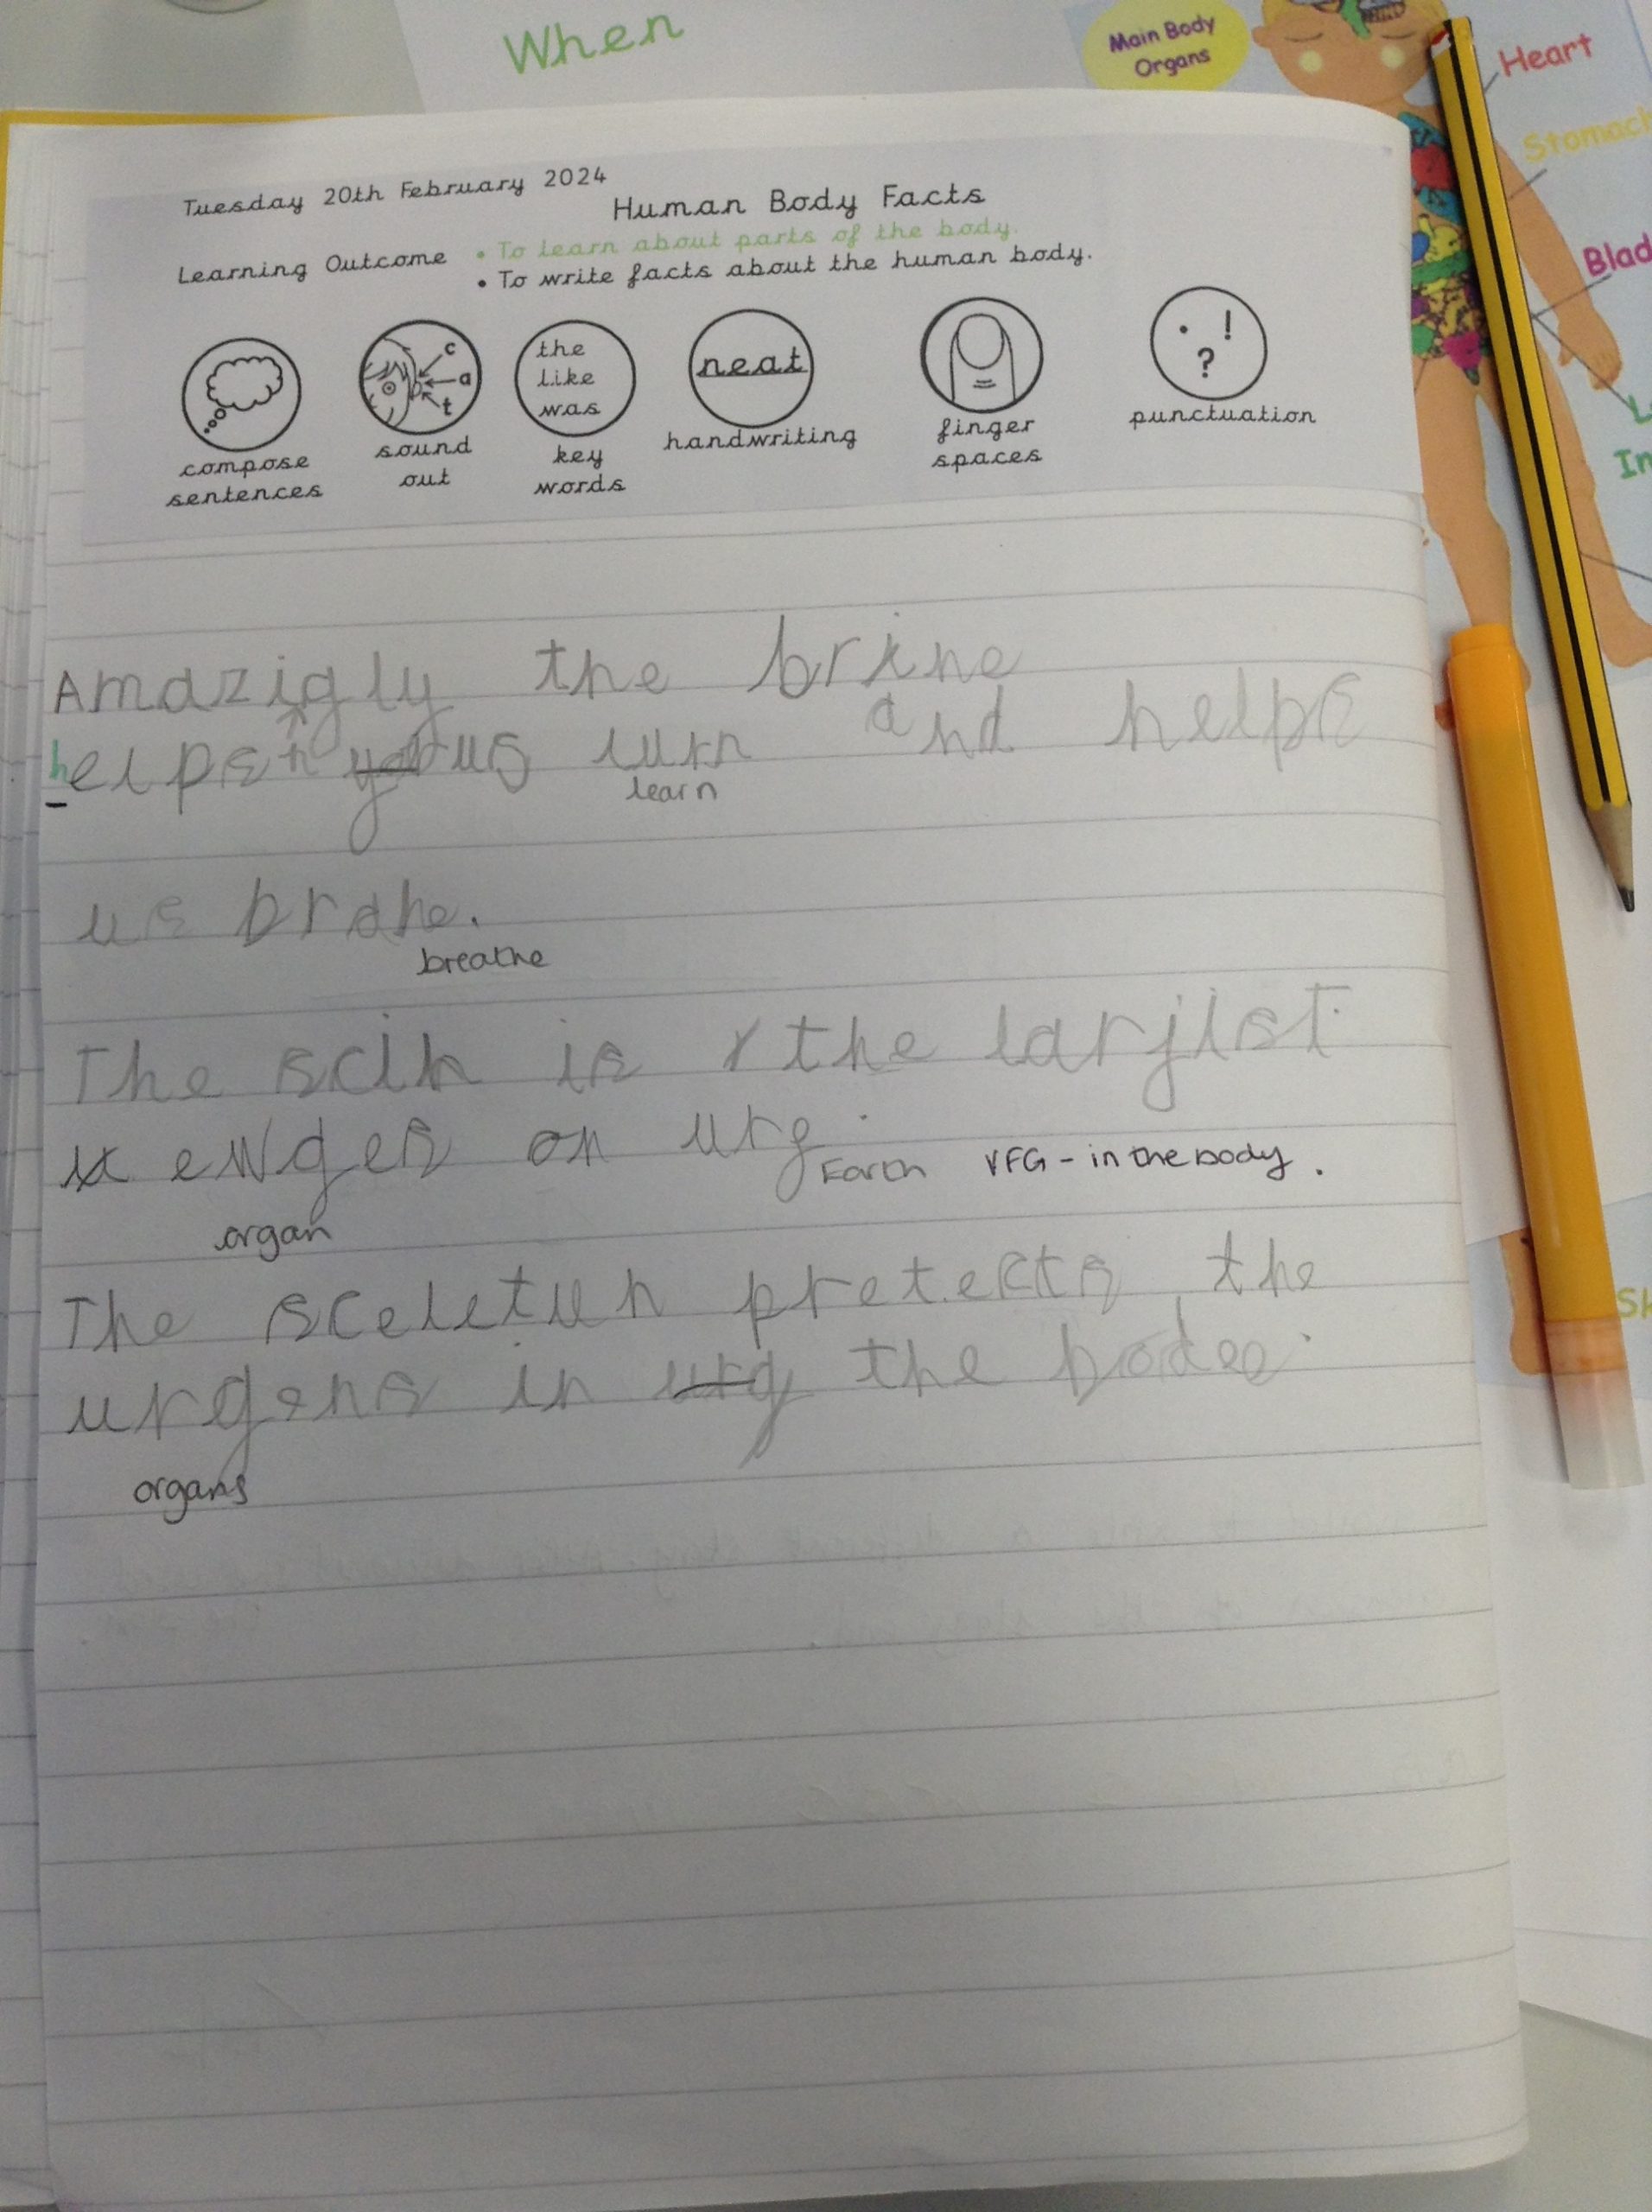 When
Main Body
Organs
Heart
Stomach
Blad
In
Tuesday 20th February 2024
Human Body Facts
Learning Outcome
• To learn about parts of the body.
• To write facts about the human body.
c
a
t
the
like
was
neat
. !
?
compose
sentences
sound
out
key
words
handwriting
finger
spaces
punctuation
Amazigly the brine
helps us lurn and helps
learn
us brahe.
breathe
The scin is the larjist
on urg.
Earth VFG - in the body.
organ
The sceletun pretects the
urgens in urg the bodee.
organs